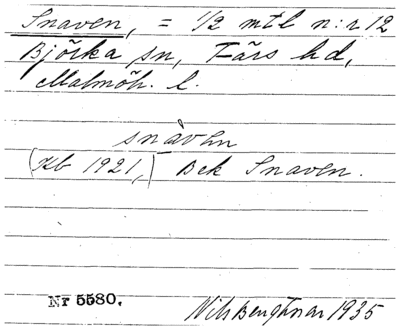 Snaven, = 1/2 mtl n:r 12
Björka sn, Färs hd,
Malmöh. l.
snåven
(Kb 1921,) Bek Snaven.
Nr 5580.
Nils Bengtnar 1935